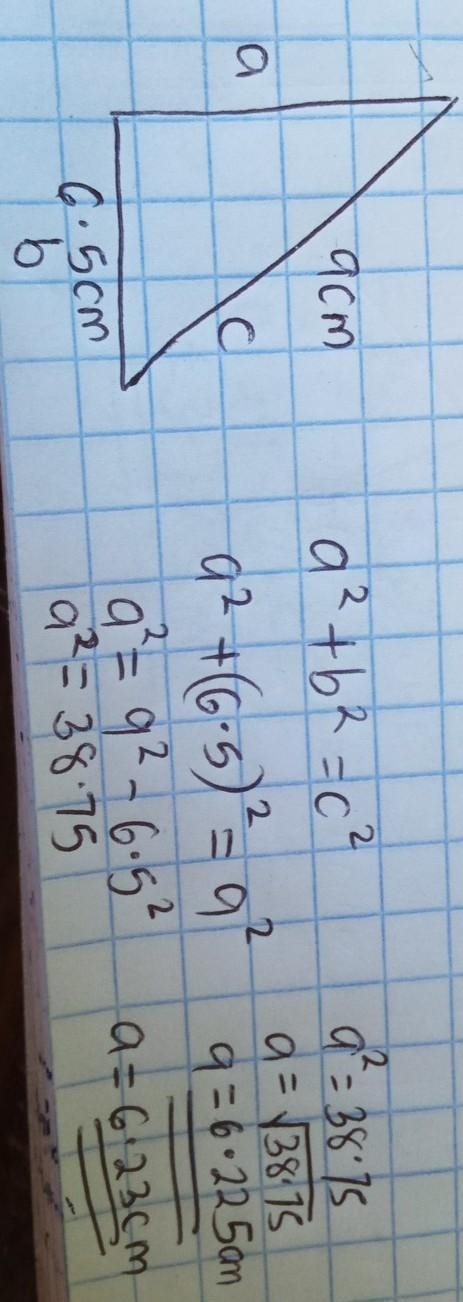 a
9cm
c
6.5cm
b
a² + b² = c²
a² + (6.5)² = 9²
a² = 9² - 6.5²
a² = 38.75
a² = 38.75
a = √38.75
a = 6.225cm
a = 6.23cm